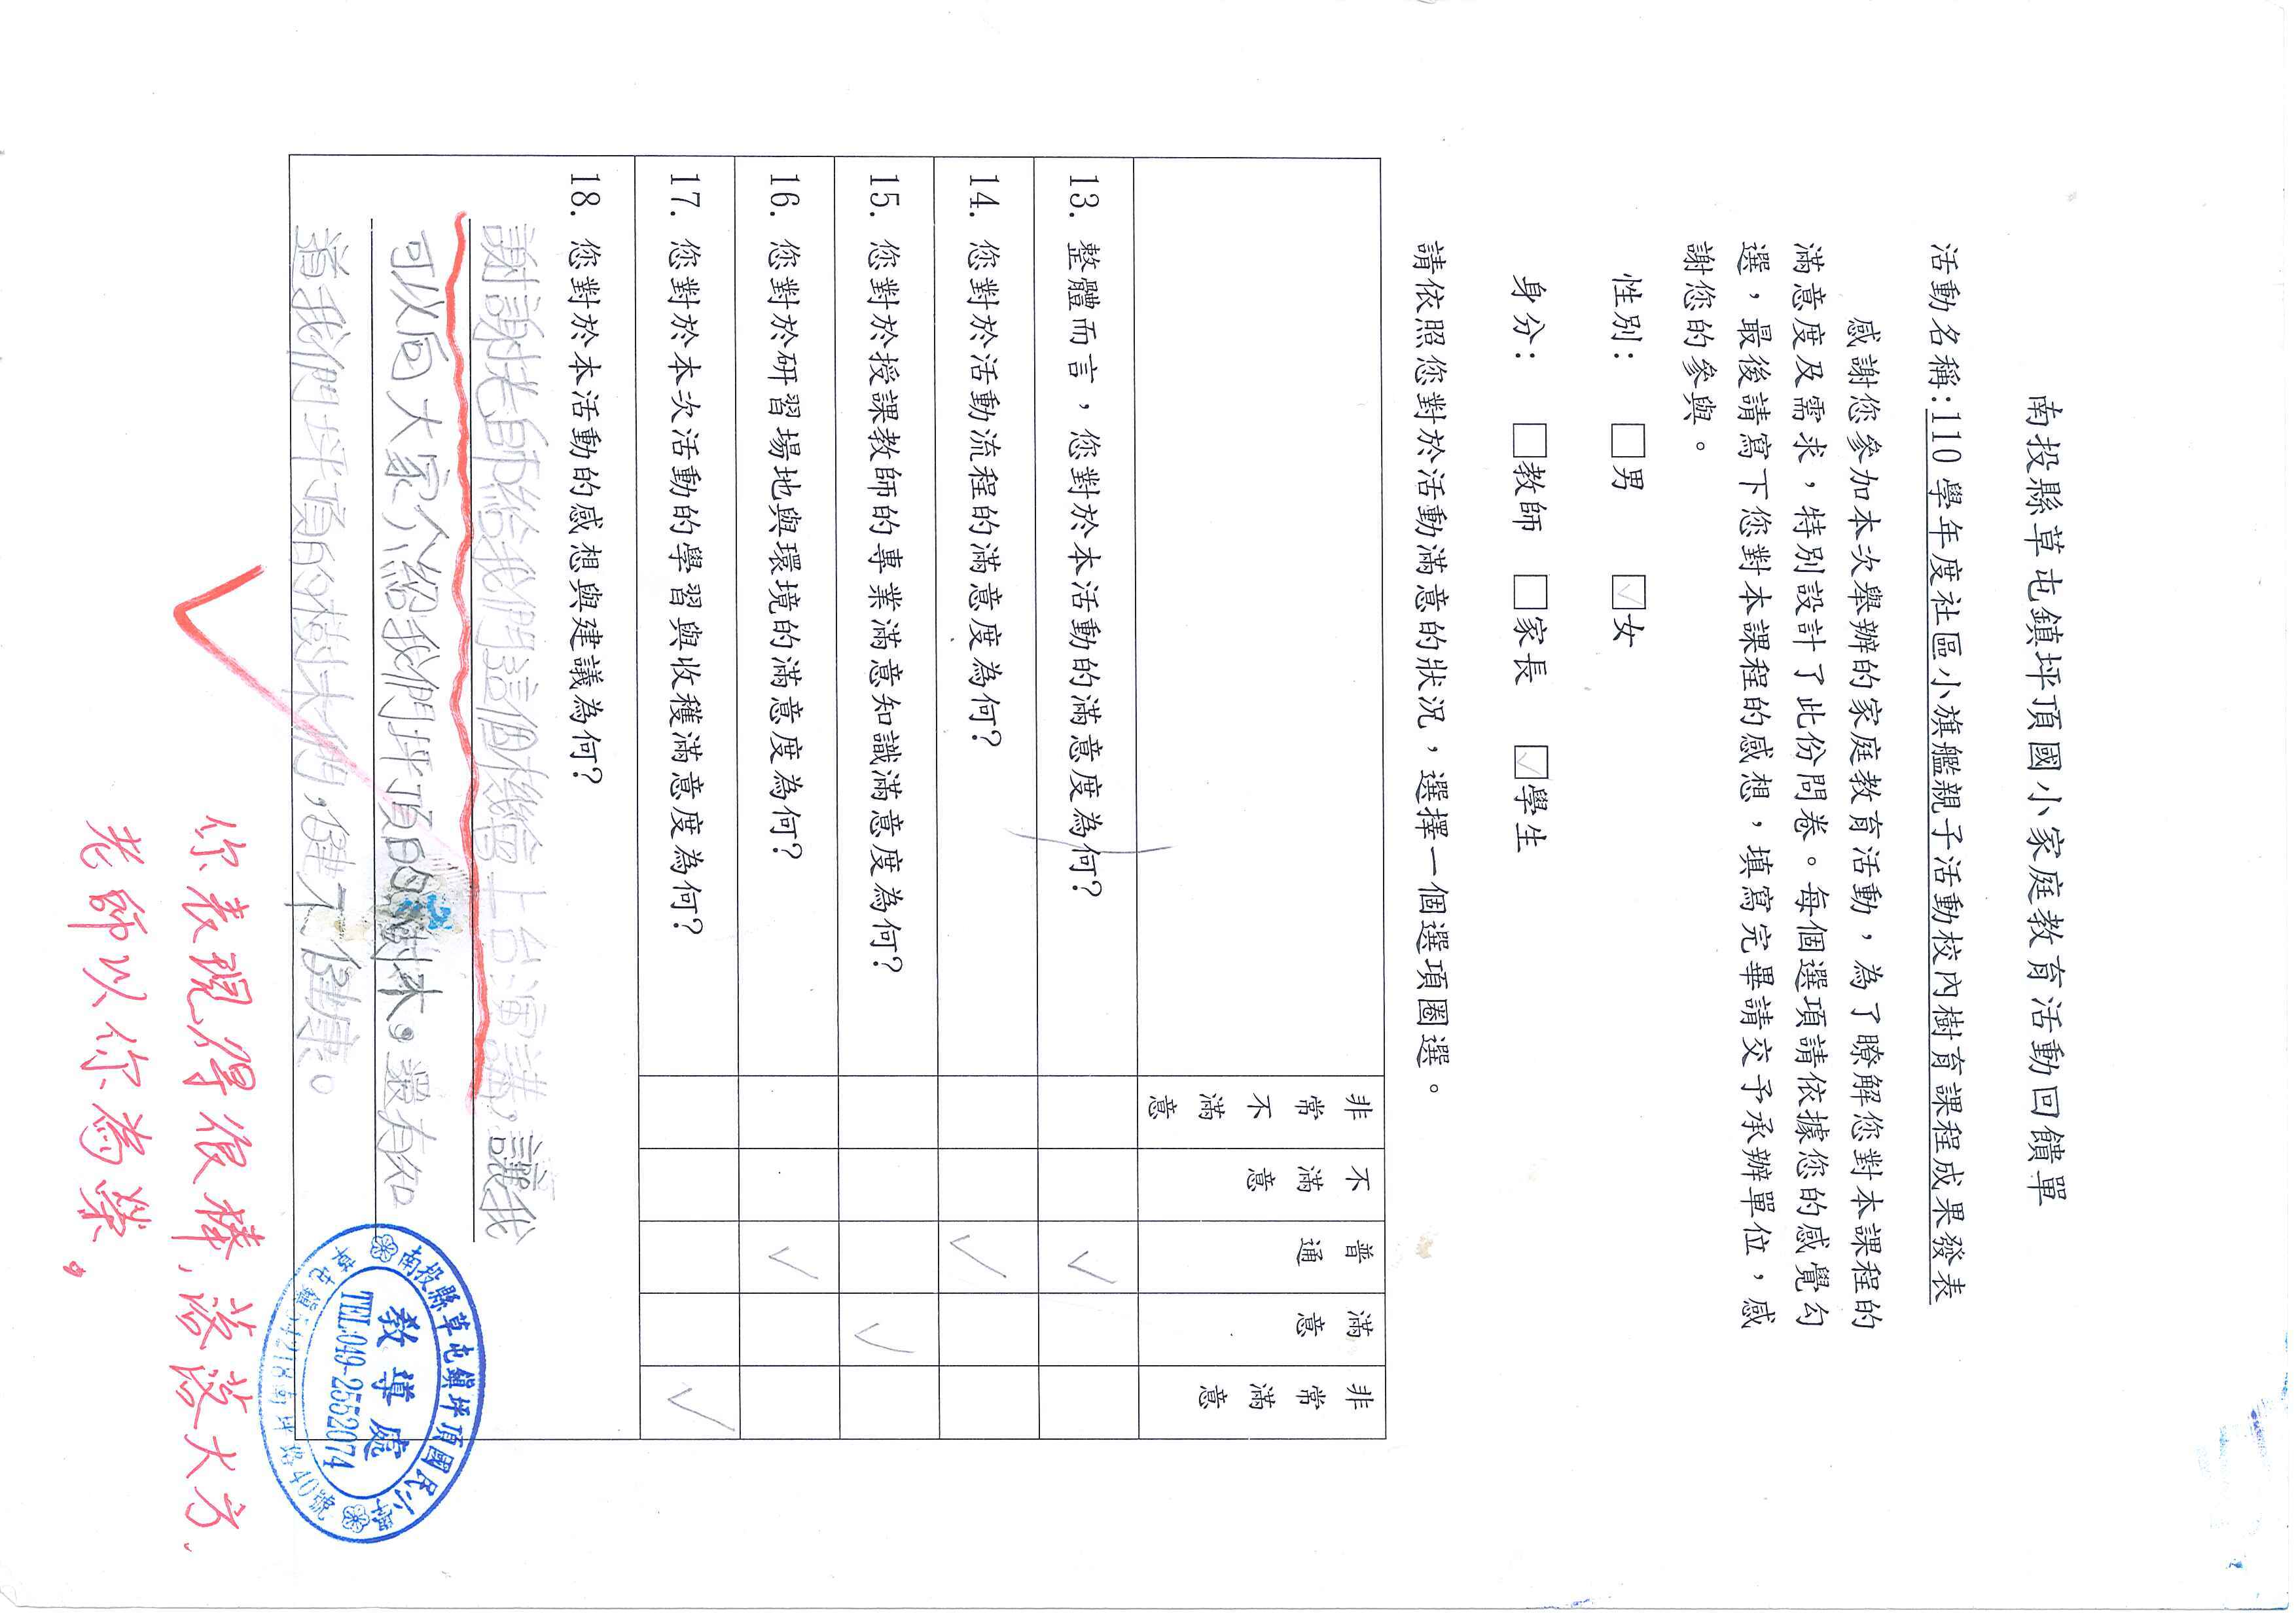 南投縣草屯鎮坪頂國小家庭教育活動回饋單
活動名稱:110學年度社區小旗艦親子活動校內樹育課程成果發表
感謝您參加本次舉辦的家庭教育活動，為了瞭解您對本課程的
滿意度及需求，特別設計了此份問卷。每個選項請依據您的感覺勾
選，最後請寫下您對本課程的感想，填寫完畢請交予承辦單位，感
謝您的參與。
性別： □男 ☑女
身分： □教師 □家長 ☑學生
請依照您對於活動滿意的狀況，選擇一個選項圈選。
非常不滿意 不滿意 普通 滿意 非常滿意
13. 整體而言，您對於本活動的滿意度為何? ✓
14. 您對於活動流程的滿意度為何? ✓
15. 您對於授課教師的專業滿意知識滿意度為何? ✓
16. 您對於研習場地與環境的滿意度為何? ✓
17. 您對於本次活動的學習與收穫滿意度為何? ✓
18. 您對於本活動的感想與建議為何?
謝謝老師給我們這個機會上台演講，讓我
可以向大家介紹我們坪頂的樹木。還有知
道我們坪頂的樹木們，健不健康。
南投縣草屯鎮坪頂國民小學
教導處
TEL:049-2552074
你表現得很棒，落落大方，
老師以你為榮。